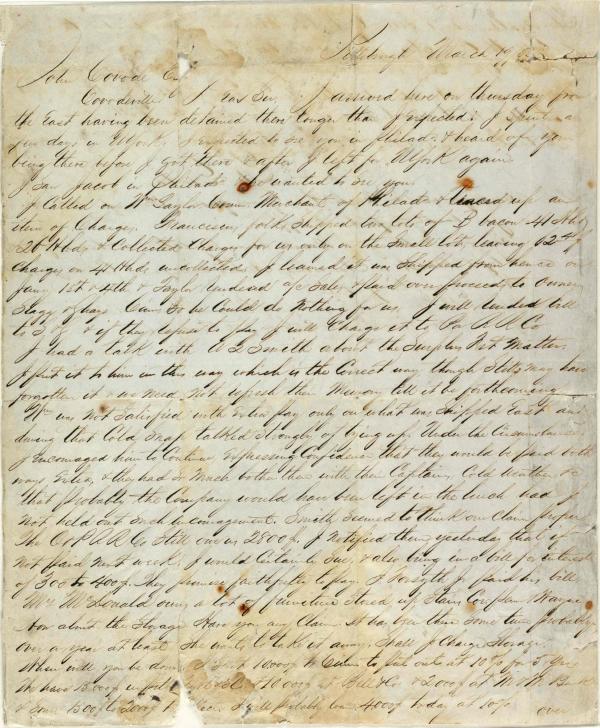 Pittsburgh March 19
John Covode Esq
Covodeville Dear Sir, I arrived here on Thursday from
the East having been detained there longer than I expected. I spent a
few days in NYork. I expected to see you in Philad & heard of you
being there before I got there & after I left for NYork again.
I saw Jacob in Philad who wanted to see you.
I called on Wm Taylor Comn Merchant of Philad & up an
item of Charges. shipped two lots of bacon 41 Hhds
& 26 Hhds & Collected Charges for us only on the small lot, leaving 62
Charges on 41 Hhds uncollected. I learned it was shipped from hence on
Jany 1st & 4th & Taylor rendered a/c sales & paid over proceeds to owners
says he Could do Nothing for us. I will send bill
to & if they refuse to pay I will Charge it to Pa R R Co
I had a talk with Smith about the Surplus Matter.
I put it to him in this way which is the correct way though may have
forgotten it & we need not refresh their Memory till it be forthcoming
He was not Satisfied with pay only on what was shipped East and
during that Cold Snap talked strongly of tying up. Under the Circumstances
I Encouraged him to Continue expressing Confidence that they would be paid both
ways & they had so Much bother then with their Captains, Cold Weather &c
that probably the Company would have been left in the lurch had I
not held out such encouragement. Smith seemed to think our Claim proper
The R R Co Still owe us 2800$. I notified them yesterday that if
not paid next week, I would Certainly Sue, & also bring in a bill for interest
of 300 to 400$. They promise faithfully to pay. Forsyth Jr paid his bill
Mr McDonald owns a lot of furniture stored up Stairs Cor Penn & Wayne
Now about the Storage Have you any Claim. It has been there some time probably
over a year at least She wants to take it away. Shall I Charge Storage.
When will you be down. I 10,000$ to out at 10% for 5
We have 5,000$ in 10,000$ at Bell & Co & 2000$ at
& 1500$ to 2000$ I will probably loan 4000$ today at 10%
over